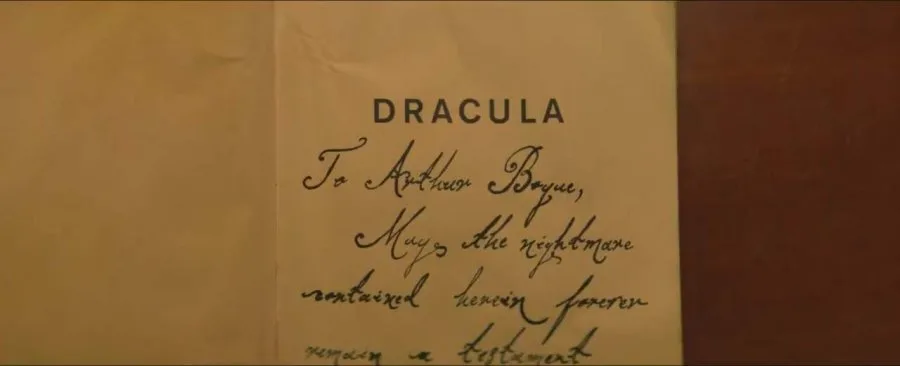 DRACULA
To Arthur Bogue,
the nightmare
contained herein forever
remain a testament